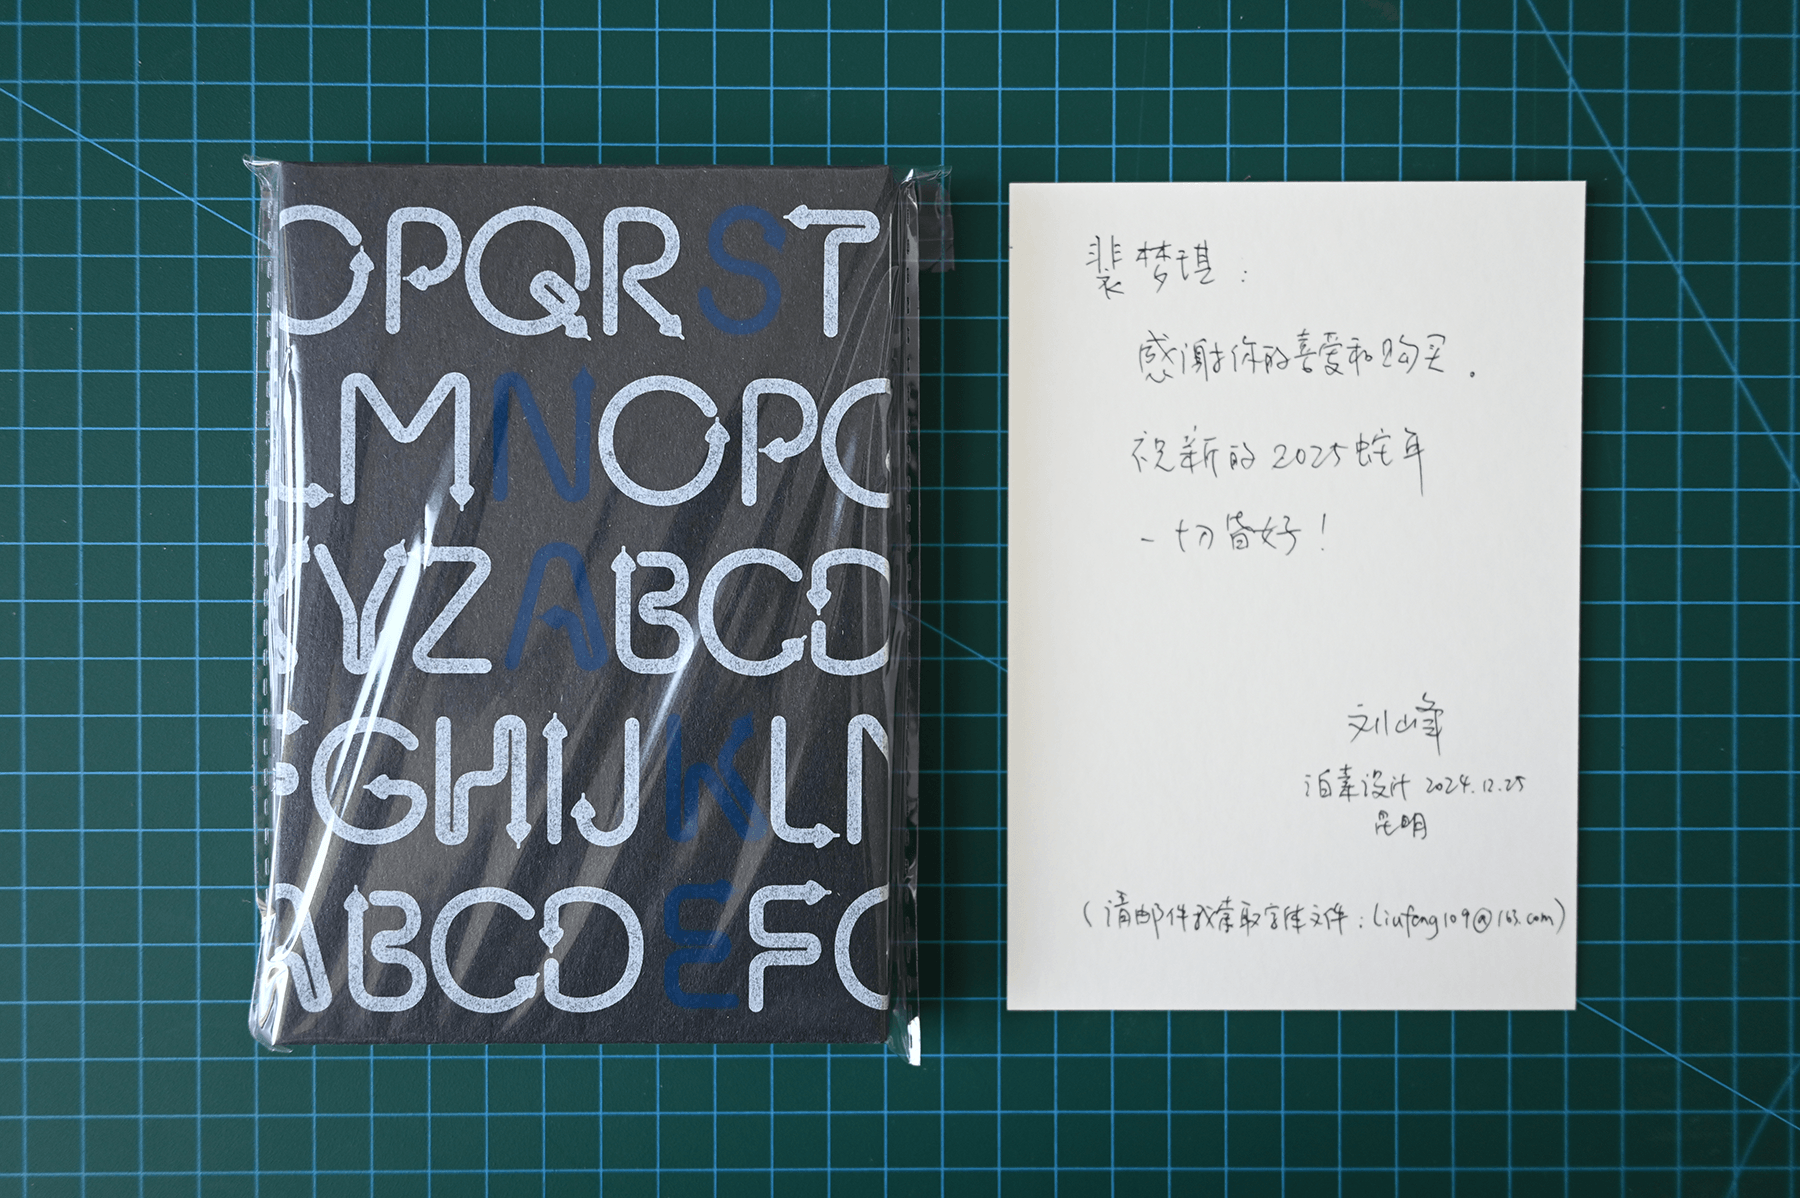 OPQRST
LMNOPQ
XYZABCD
FGHIJKLM
ABCDEFG
裴梦琪：
感谢你的喜爱和购买。
祝新的2025蛇年
一切皆好！
刘山峰
泊素设计 2024.12.25
昆明
（请邮件我索取字体文件：liufeng109@163.com）